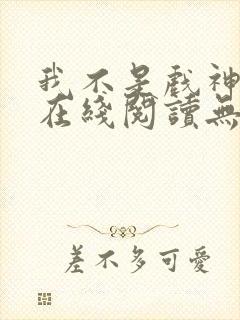 我不是戲神
在綫閱讀無
差不多可愛